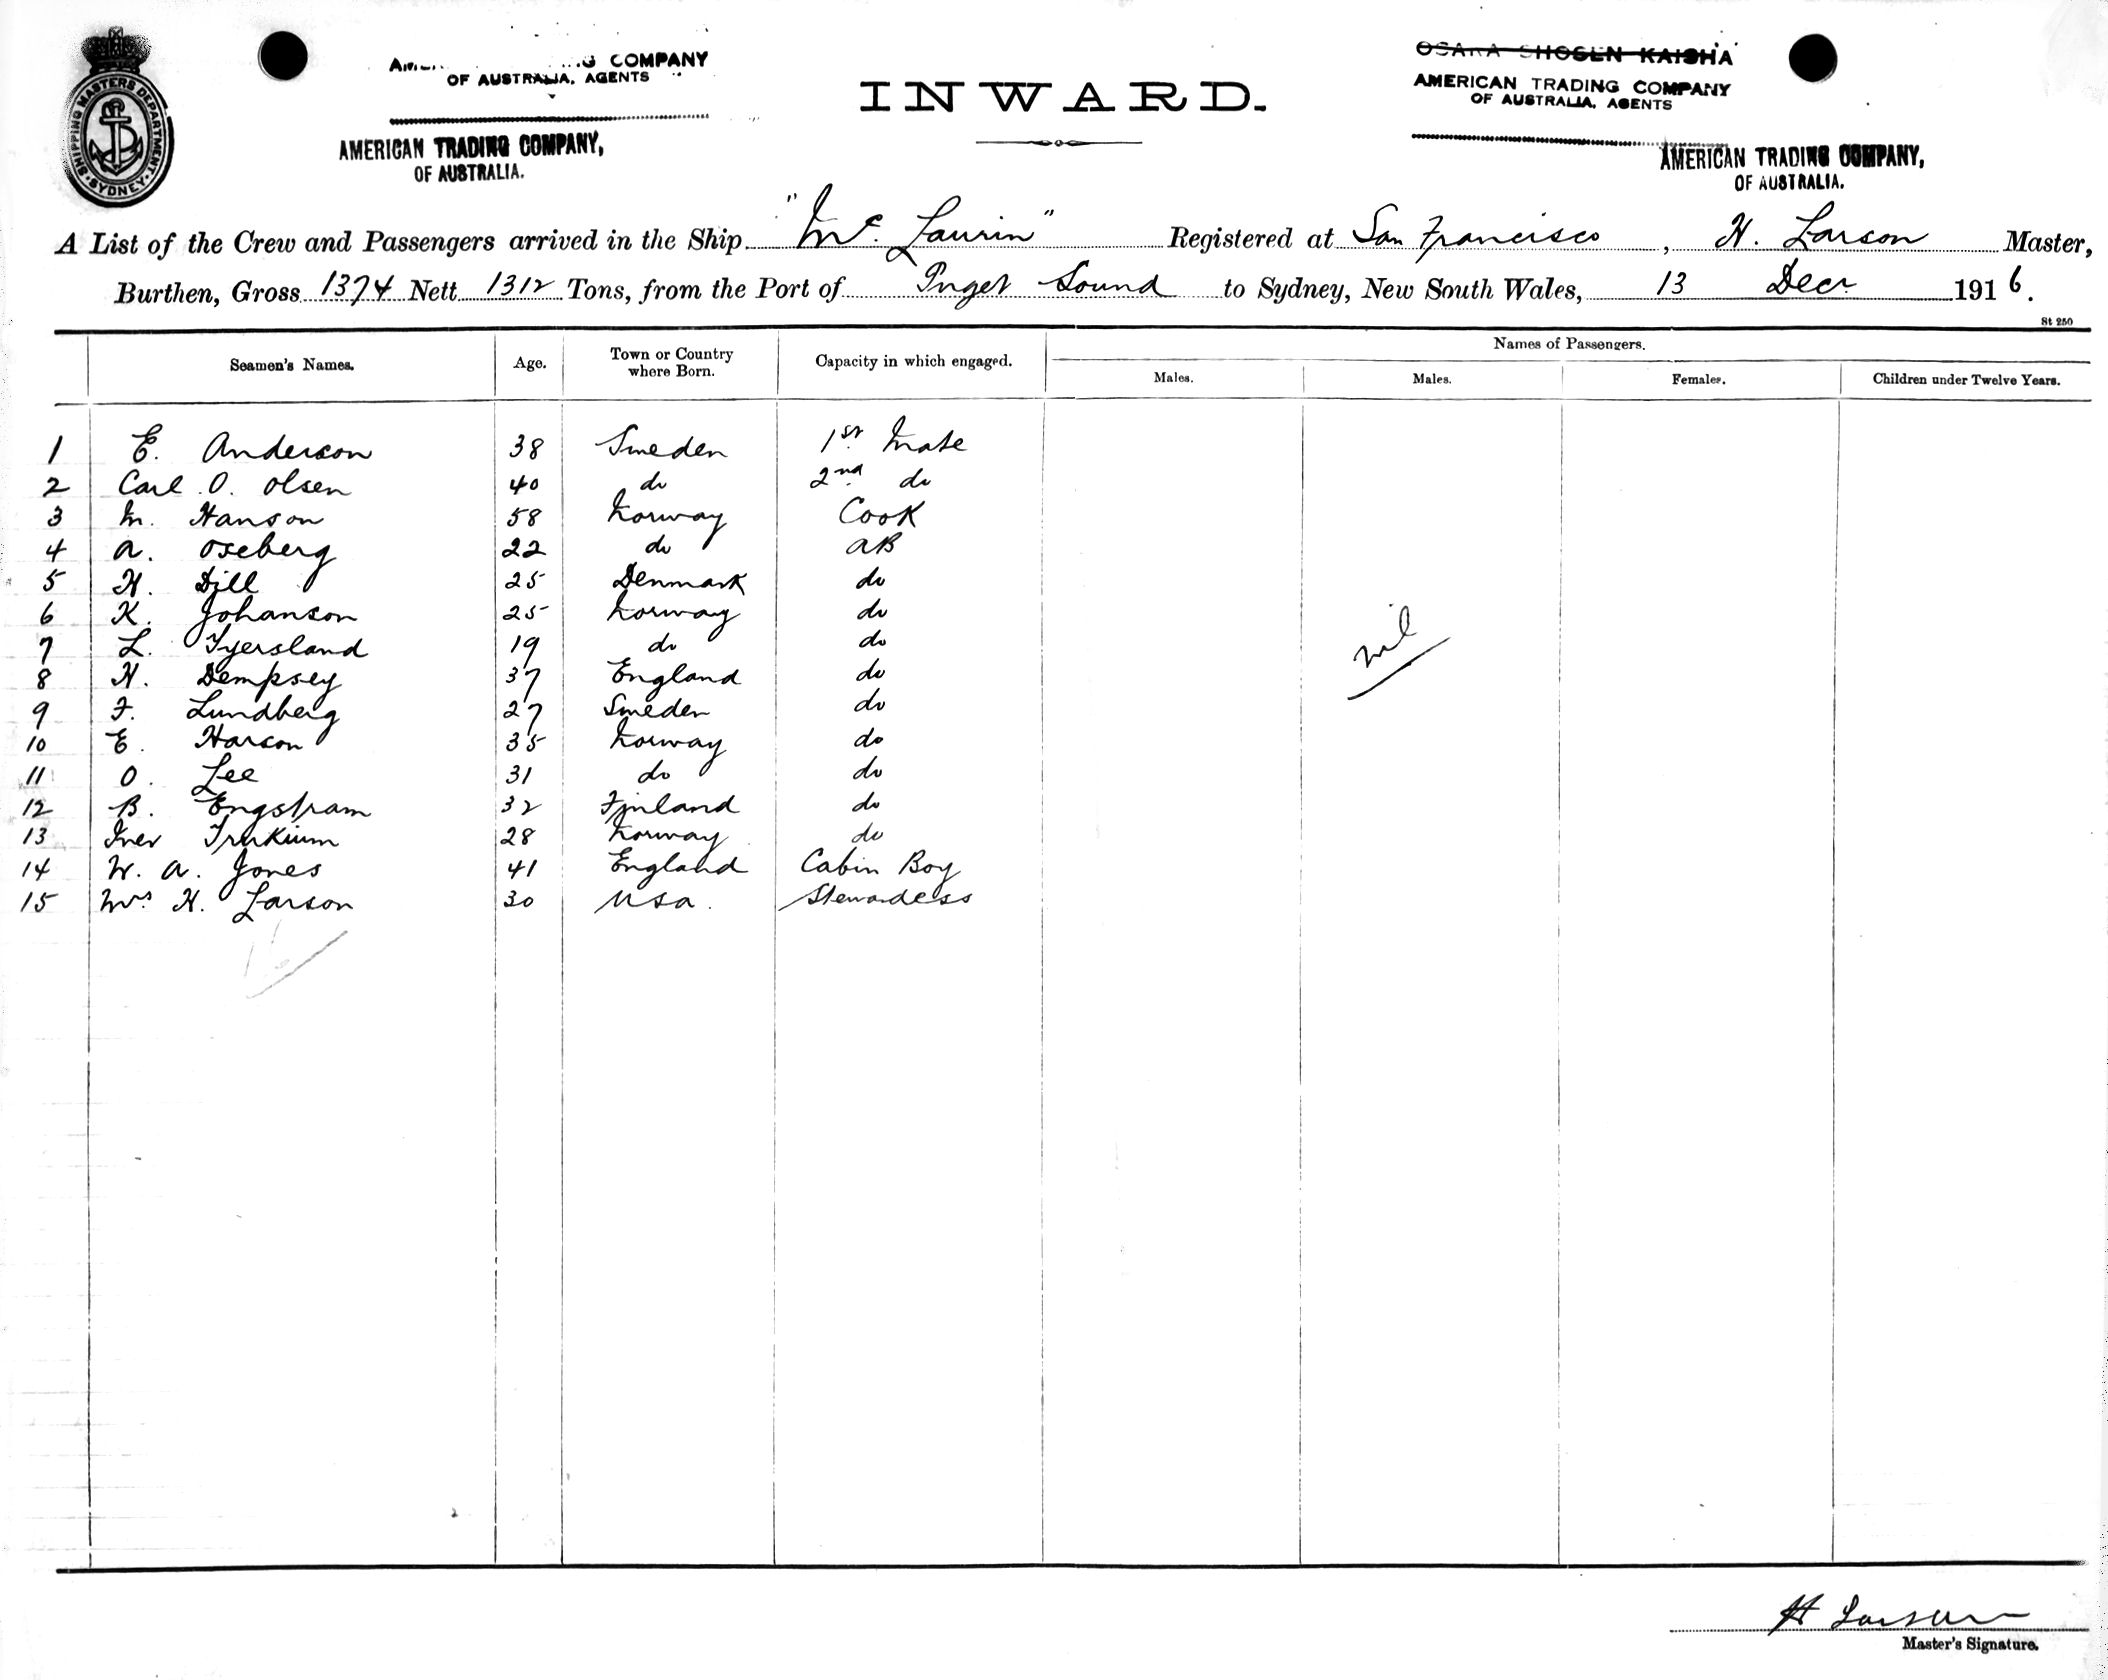 SHIPPING MASTERS DEPARTMENT
SYDNEY
COMPANY
OF AUSTRALIA, AGENTS
AMERICAN TRADING COMPANY,
OF AUSTRALIA.
INWARD.
OSAKA SHOSEN KAISHA
AMERICAN TRADING COMPANY
OF AUSTRALIA, AGENTS
AMERICAN TRADING COMPANY,
OF AUSTRALIA.
A List of the Crew and Passengers arrived in the Ship "Mc. Laurin" Registered at San Francisco, H. Larson Master,
Burthen, Gross 1374 Nett 1312 Tons, from the Port of Puget Sound to Sydney, New South Wales, 13 Decr 1916.
St 250
Seamen's Names. Age. Town or Country where Born. Capacity in which engaged. Names of Passengers.
Males. Males. Females. Children under Twelve Years.
1 E. Anderson 38 Sweden 1st Mate
2 Carl O. Olsen 40 do 2nd do
3 M. Hanson 58 Norway Cook
4 A. Oseberg 22 do AB
5 H. Dill 25 Denmark do
6 K. Johanson 25 Norway do
7 L. Tjersland 19 do do
8 H. Dempsey 37 England do
9 F. Lundberg 27 Sweden do
10 E. Harson 35 Norway do
11 O. Lee 31 do do
12 B. Engstram 32 Finland do
13 Iver 28 Norway do
14 W. A. Jones 41 England Cabin Boy
15 Mrs H. Larson 30 USA. Stewardess
nil
16
H Larson
Master's Signature.